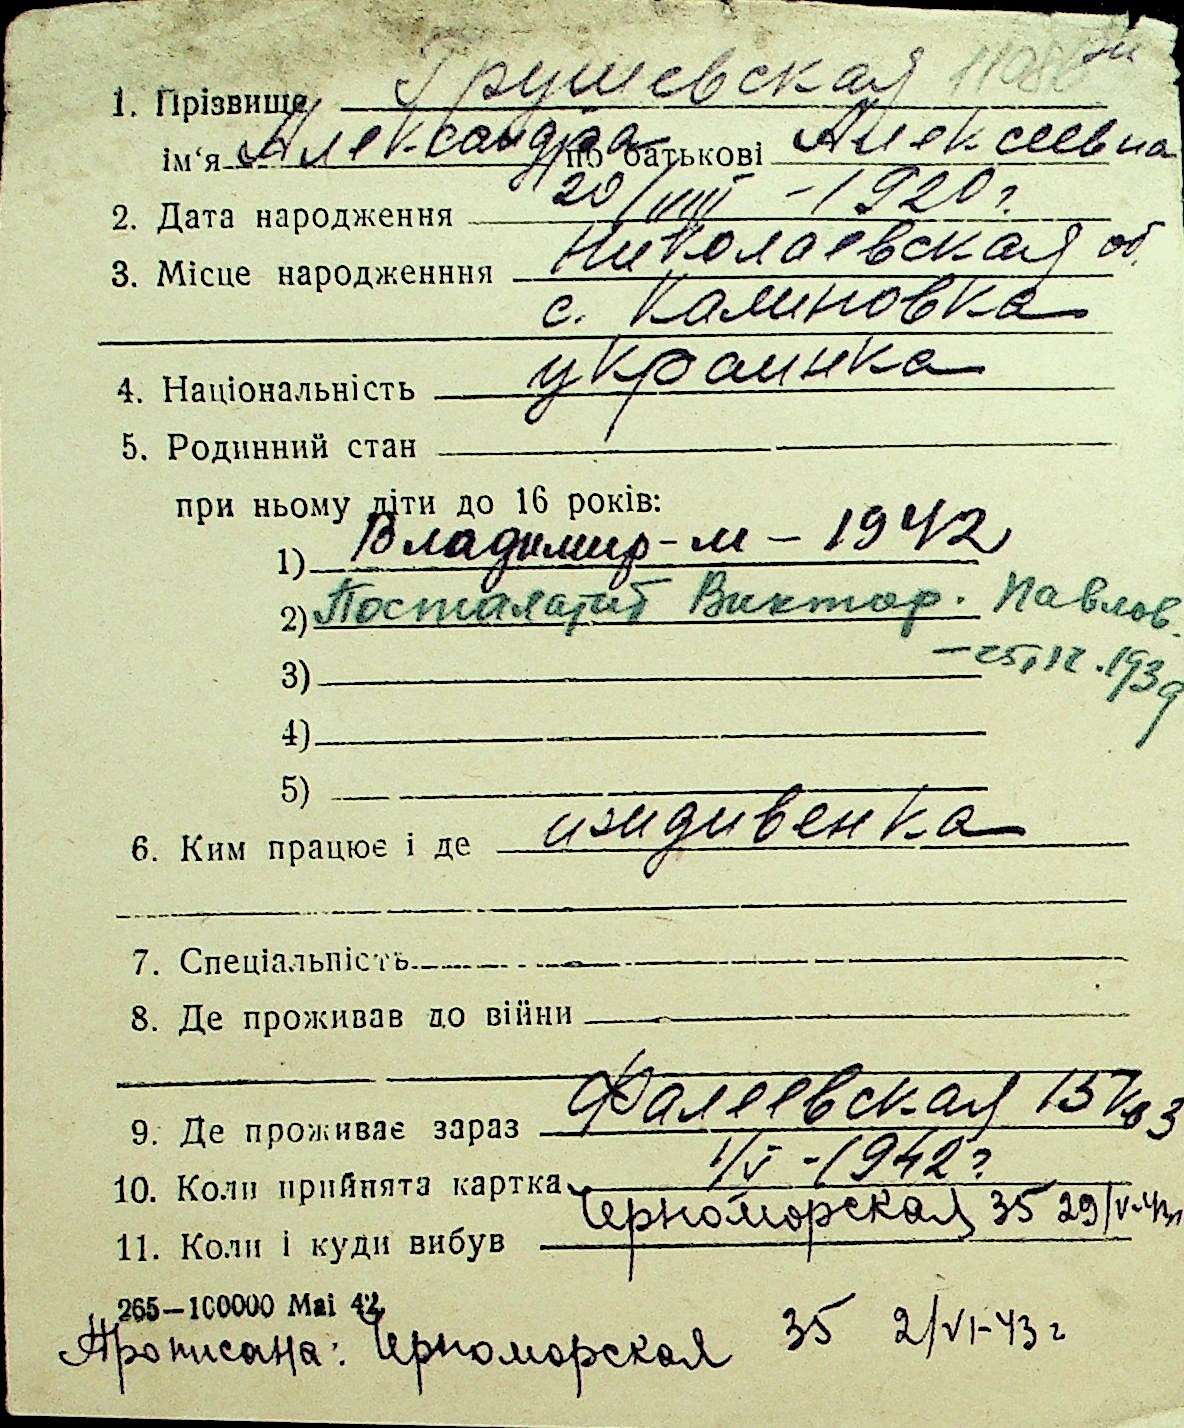 1. Прізвище Грушевская 11086
ім'я Александра по батькові Алексеевна
2. Дата народження 20/VIII - 1920 г.
3. Місце народженння Николаевская об.
с. Калиновка
4. Національність украинка
5. Родинний стан
при ньому діти до 16 років:
1) Владимир - м - 1942
2) Виктор. Павлов.
- 25.12.1939
3)
4)
5)
6. Ким працює і де иждивенка
7. Спеціальність
8. Де проживав до війни
9. Де проживає зараз Фалеевская 15 кв 3
10. Коли прийнята картка 1/V - 1942 г.
11. Коли і куди вибув Черноморская 35 29/V-43г
265—100000 Mai 42
Прописана: Черноморская 35 2/VI-43 г